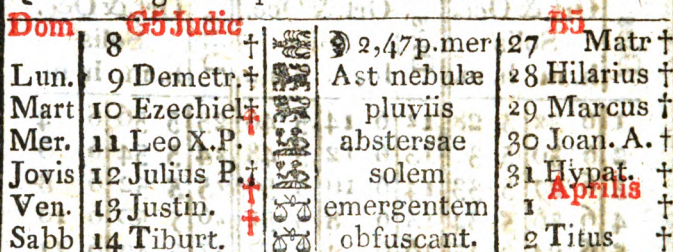 Dom 8 G5 Judic † ☽ 2,47 p. mer 27 B5 Matr †
Lun. 9 Demetr. † Ast nebulæ 28 Hilarius †
Mart 10 Ezechiel † pluviis 29 Marcus †
Mer. 11 Leo X. P. † abstersae 30 Joan. A. †
Jovis 12 Julius P. † solem 31 Hypat. †
Ven. 13 Justin. † emergentem 1 Aprilis
Sabb 14 Tiburt. † obfuscant. 2 Titus